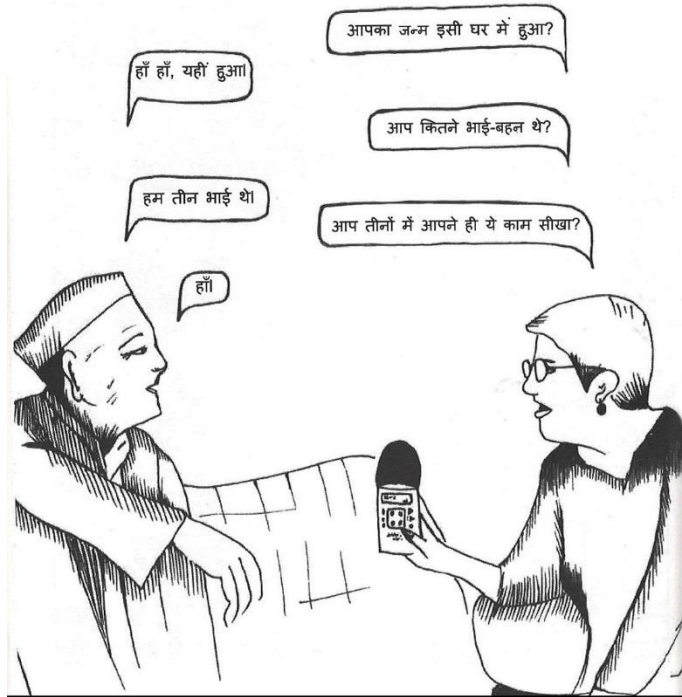 आपका जन्म इसी घर में हुआ?
हाँ हाँ, यहीं हुआ।
आप कितने भाई-बहन थे?
हम तीन भाई थे।
आप तीनों में आपने ही ये काम सीखा?
हाँ।